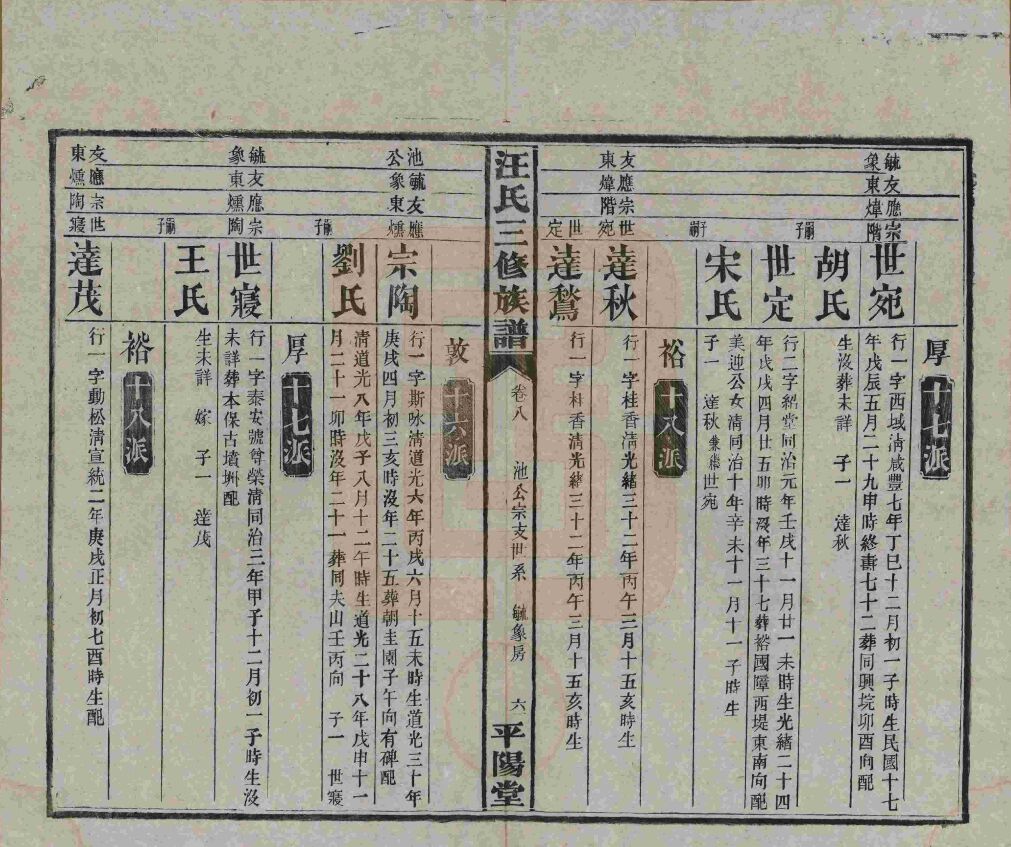 厚 十七派
毓象 友東 應煒 宗階
世宛
行一字西域清咸豐七年丁巳十二月初一子時生民國十七
年戊辰五月二十九申時終壽七十二葬同興垸卯酉向配
胡氏
生沒葬未詳 子一 達秋
嗣子
世定
行二字紹堂同治元年壬戌十一月廿一未時生光緒二十四
年戊戌四月廿五卯時沒年三十七葬裕國障西堤東南向配
宋氏
姜迎公女清同治十年辛未十一月十一子時生
子一 達秋兼繼世宛
裕 十八派
友東 應煒 宗階 世宛
達秋
行一字桂香清光緒三十二年丙午三月十五亥時生
世定
達鶖
行一字桂香清光緒三十二年丙午三月十五亥時生
汪氏三修族譜 卷八 池公宗支世系 毓象房 六 平陽堂
敦 十六派
池公 毓象 友東 應燻
宗陶
行一字斯咏清道光六年丙戌六月十五未時生道光三十年
庚戌四月初三亥時沒年二十五葬朝圭園子午向有碑配
劉氏
清道光八年戊子八月十二午時生道光二十八年戊申十一
月二十一卯時沒年二十一葬同夫山壬丙向 子一 世寢
嗣子
厚 十七派
毓象 友東 應燻 宗陶
世寢
行一字泰安號尊榮清同治三年甲子十二月初一子時生沒
未詳葬本保古墳坤配
王氏
生未詳 嫁 子一 達茂
嗣子
裕 十八派
友東 應燻 宗陶 世寢
達茂
行一字動松清宣統二年庚戌正月初七酉時生配